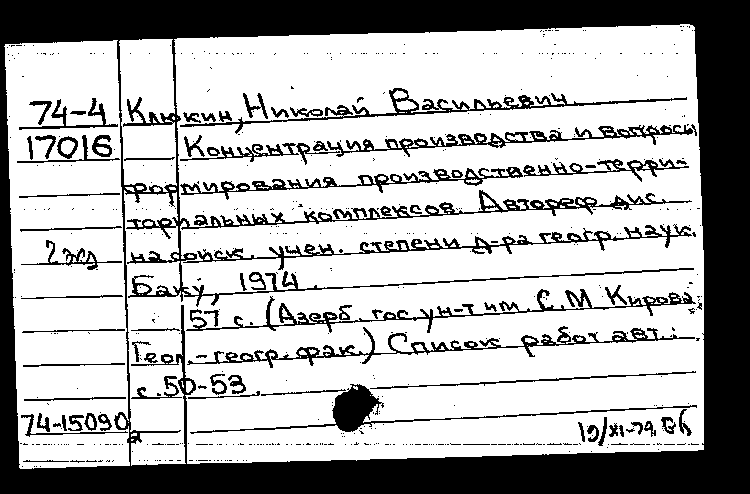 74-4 Клюкин, Николай Васильевич.
17016 Концентрация производства и вопросы
формирования производственно-терри-
ториальных комплексов. Автореф. дис.
2 экз на соиск. учен. степени д-ра геогр. наук.
Баку, 1974.
57 с. (Азерб. гос. ун-т им. С.М Кирова.
Геол.-геогр. фак.) Список работ авт.:
с. 50-53.
74-15090
а